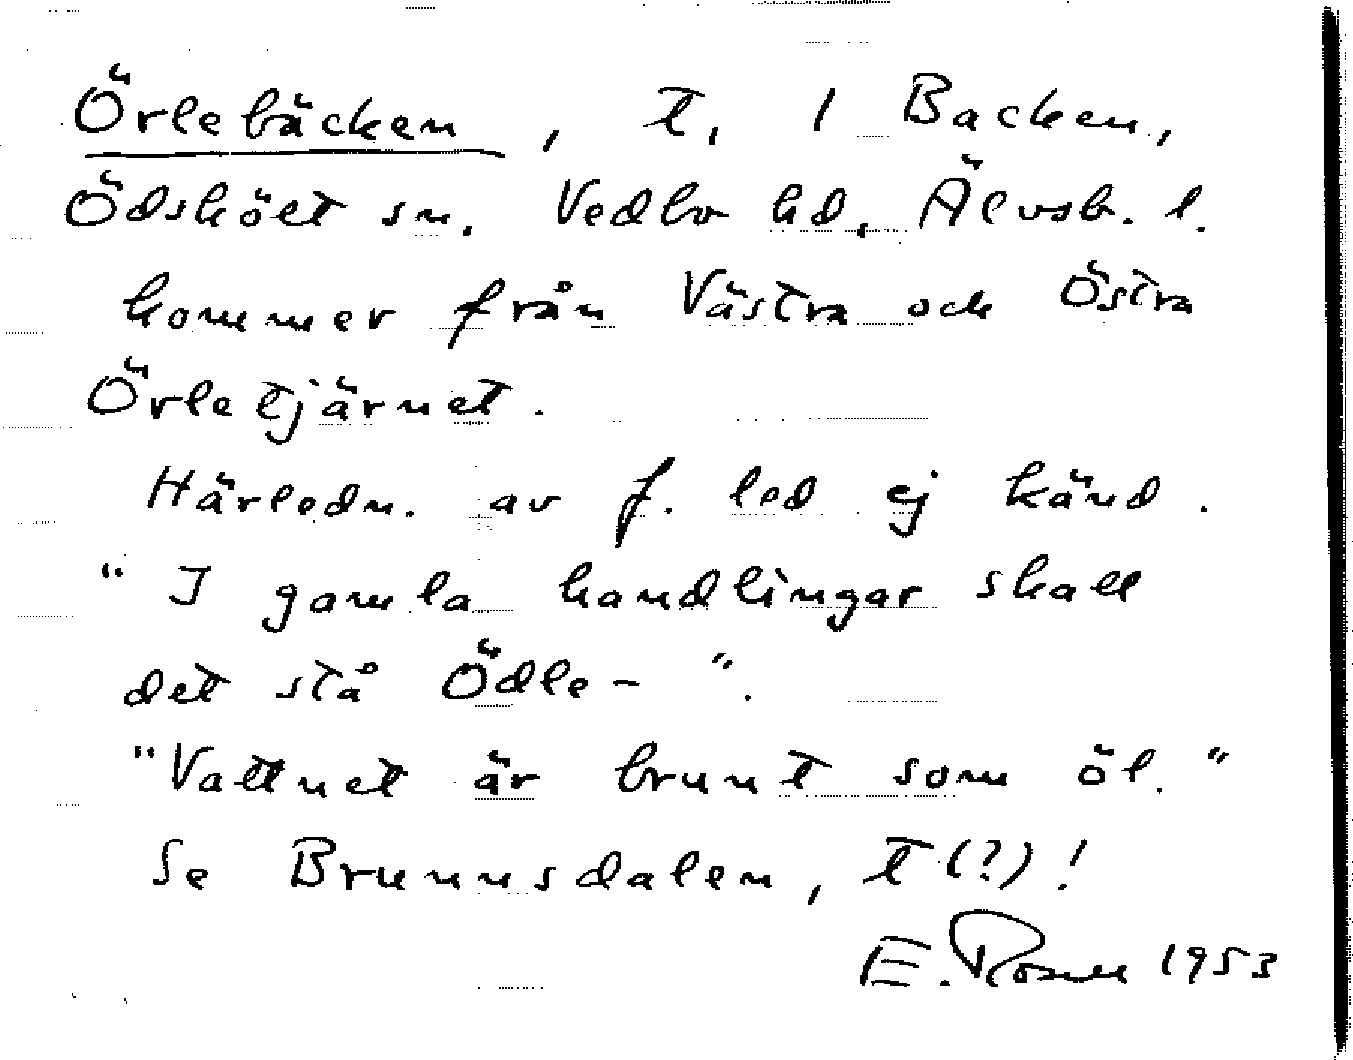 Örlebäcken, t, 1 Backen,
Ödsköet sn. Vedbo hd, Älvsb. l.
kommer från Västra och Östra
Örletjärnet.
Härledn. av f. led ej känd.
"I gamla handlingar skall
det stå Ödle-".
"Vattnet är brunt som öl."
Se Brunnsdalen, t(?)!
E. Rosell 1953